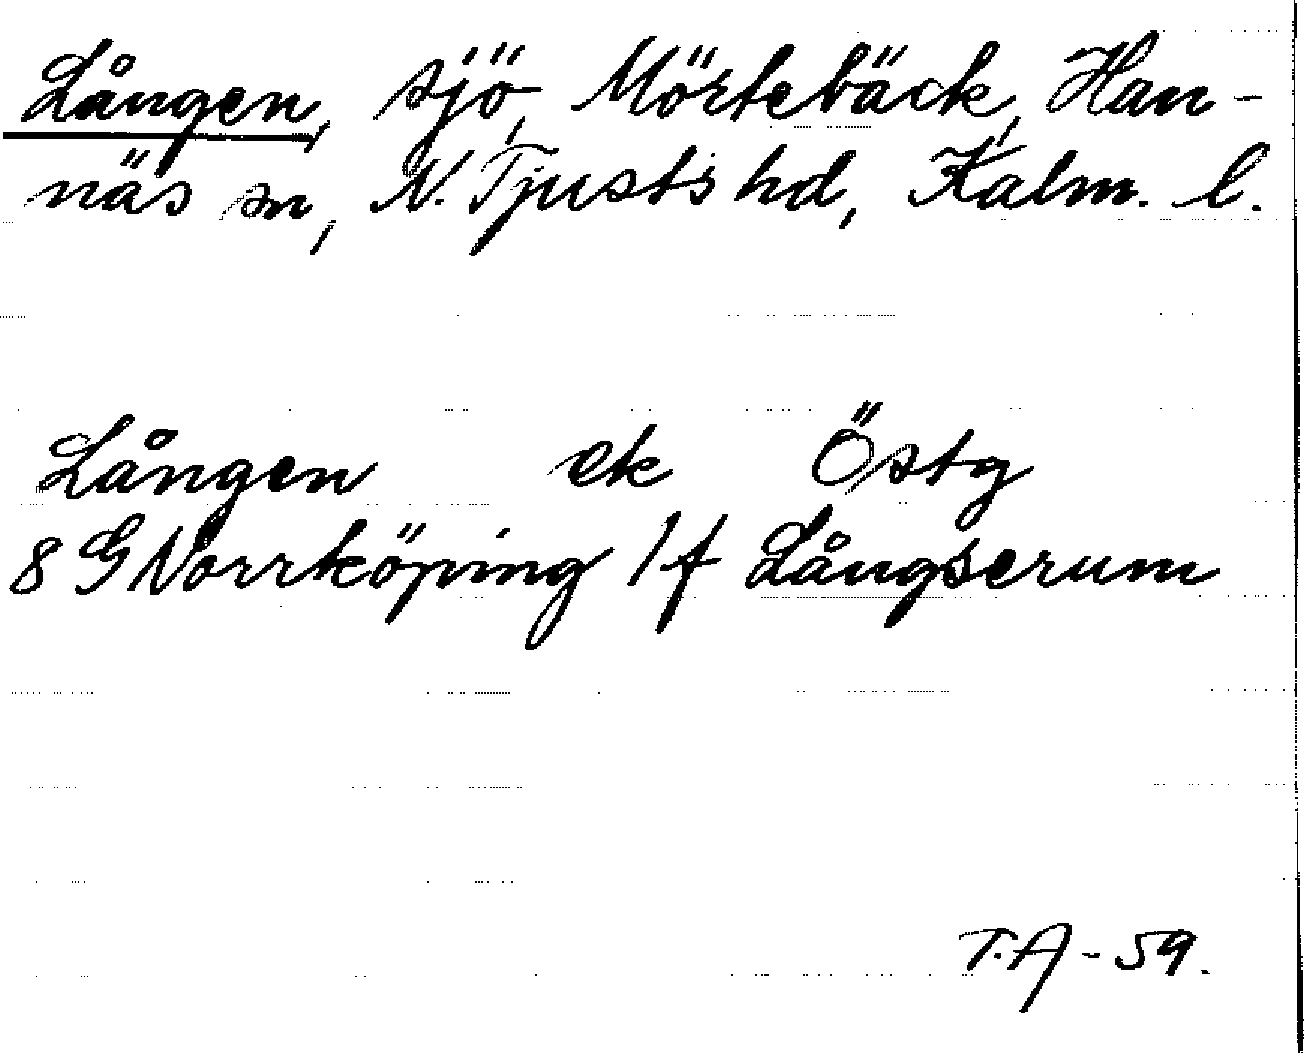 Lången, sjö, Mörtebäck, Han-
näs sn, N. Tjusts hd, Kalm. l.
Lången ek Östg
8 G Norrköping 1 f Långserum
T.A-59.